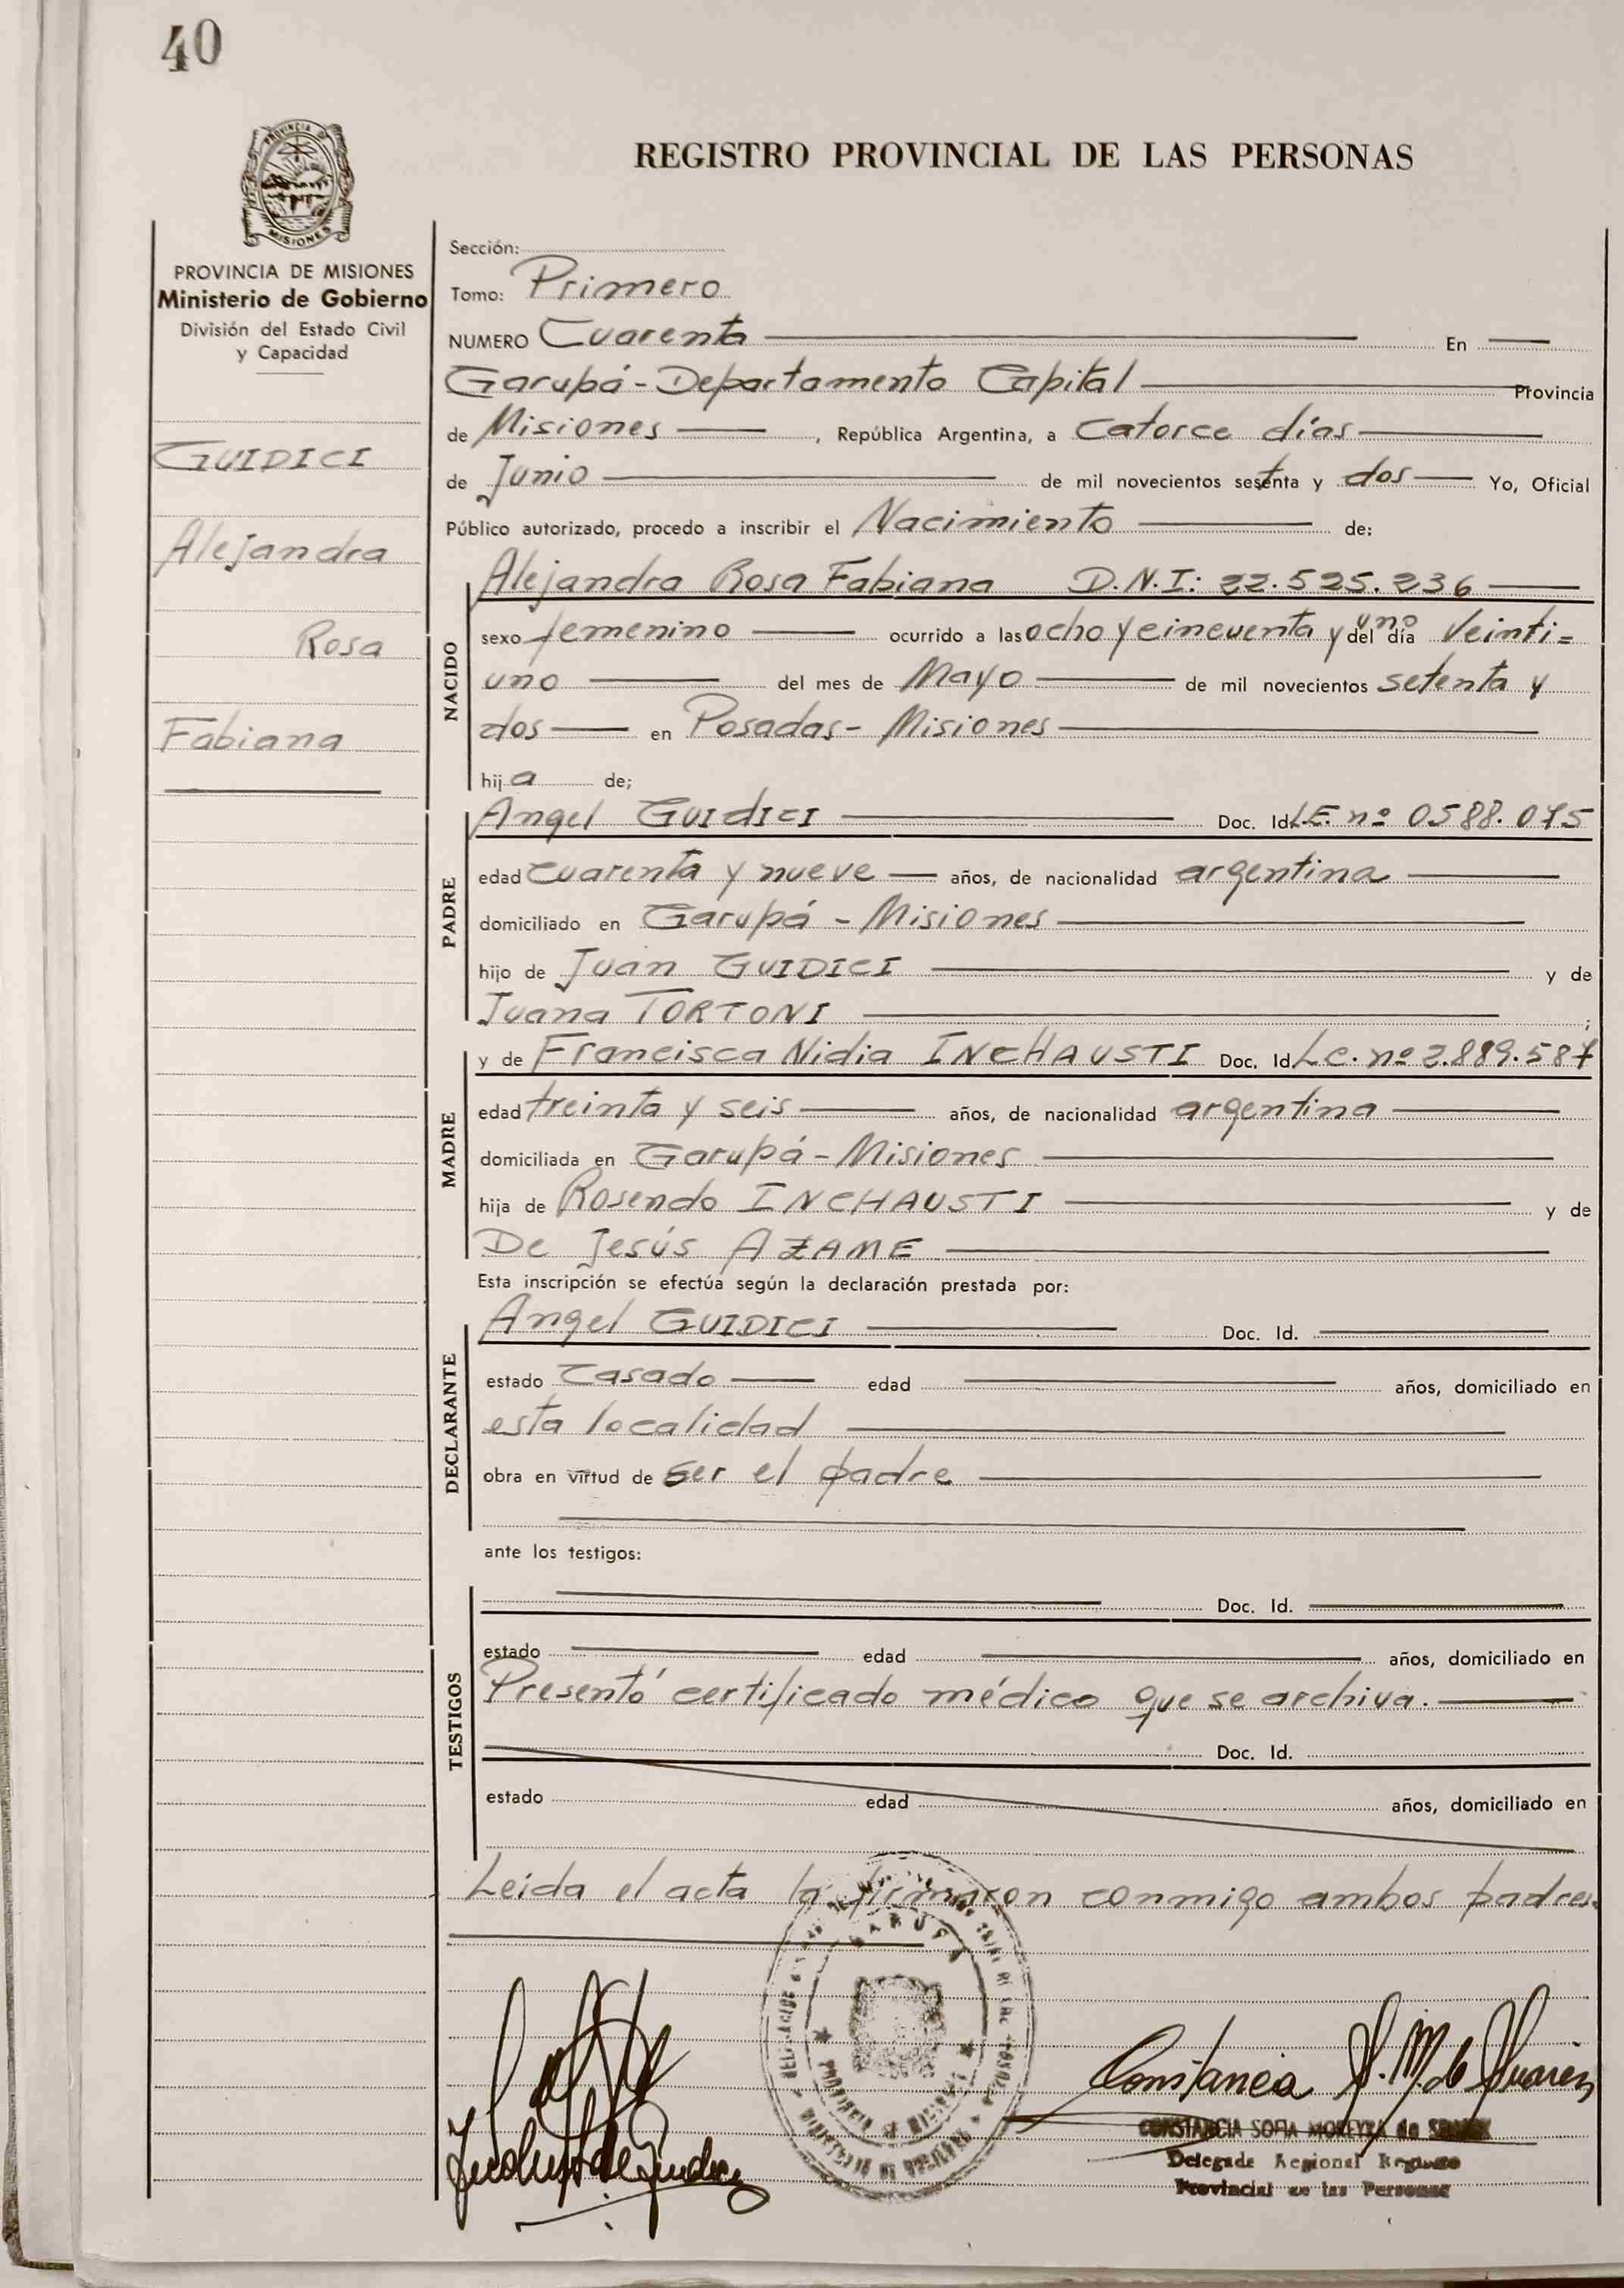 40
REGISTRO PROVINCIAL DE LAS PERSONAS
PROVINCIA DE MISIONES
Ministerio de Gobierno
División del Estado Civil
y Capacidad
GUIDICI
Alejandra
Rosa
Fabiana
Sección:
Tomo: Primero
NUMERO Cuarenta En
Garupá - Departamento Capital Provincia
de Misiones , República Argentina, a Catorce días
de Junio de mil novecientos setenta y dos Yo, Oficial
Público autorizado, procedo a inscribir el Nacimiento de:
NACIDO
Alejandra Rosa Fabiana D.N.I: 22.525.236
sexo femenino ocurrido a las ocho y cincuenta y uno del día Veinti=
uno del mes de Mayo de mil novecientos setenta y
dos en Posadas - Misiones
hij a de;
PADRE
Angel GUIdICI Doc. Id. L.E. nº 0588.075
edad cuarenta y nueve años, de nacionalidad argentina
domiciliado en Garupá - Misiones
hijo de Juan GUIDICI y de
Juana TORTONI ;
MADRE
y de Francisca Nidia INCHAUSTI Doc. Id. L.C. nº 2.889.587
edad treinta y seis años, de nacionalidad argentina
domiciliada en Garupá - Misiones
hija de Rosendo INCHAUSTI y de
De Jesús AZAME
Esta inscripción se efectúa según la declaración prestada por:
DECLARANTE
Angel GUIDICI Doc. Id.
estado Casado edad años, domiciliado en
esta localidad
obra en virtud de ser el padre
ante los testigos:
TESTIGOS
Doc. Id.
estado edad años, domiciliado en
Presentó certificado médico que se archiva.
Doc. Id.
estado edad años, domiciliado en
Leida el acta la firmaron conmigo ambos padres.
GARUPA
PROVINCIA DE MISIONES
Constancia S. M. de Suarez
CONSTANCIA SOFIA MOREYRA de
Delegada Regional Registro
Provincial de las Personas